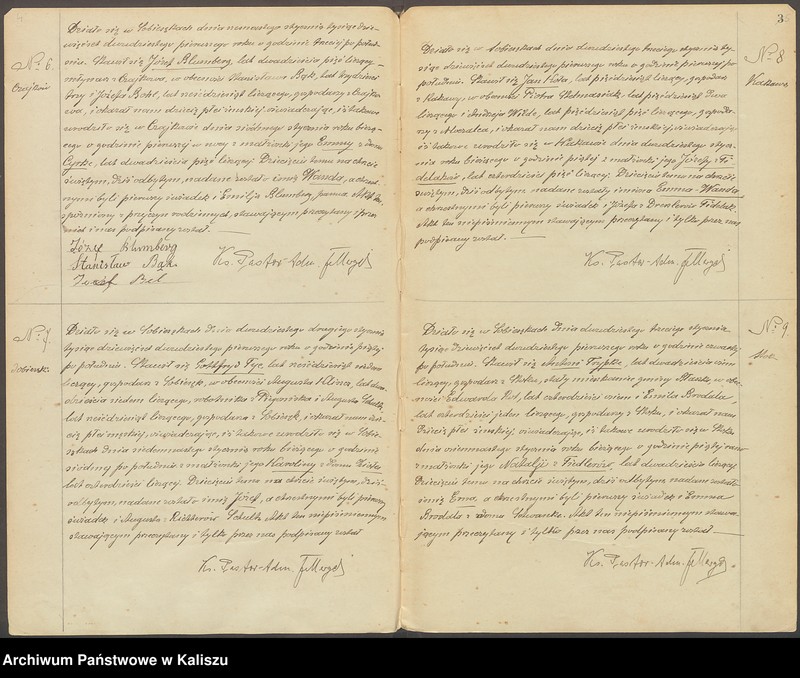 № 6.
Czajków
Działo się w Sobiesękach dnia stycznia tysiąc dzie-
więćset dwudziestego pierwszego roku o godzinie trzeciej po połud-
niu. Stawił się Józef Blumberg, lat dwadzieścia pięć liczący,
młynarz z Czajkowa, w obecności Stanisława Bąk, lat
trzy i Józefa lat sześćdziesiąt liczącego, gospodarzy z Czajko-
wa, i okazał nam dziecię płci żeńskiej, oświadczając, iż takowe
urodziło się w Czajkowie dnia siódmego stycznia roku bieżą-
cego o godzinie pierwszej w nocy z małżonki jego Emmy z domu
lat dwadzieścia pięć liczącej. Dziecięciu temu na chrzcie
świętym, dziś odbytym, nadane zostało imię Wanda, a chrzest-
nymi byli pierwszy świadek i Emilja Blumberg, panna. Akt ten
z przyczyn rodzinnych, stawającym przeczytany i przez
nas podpisany został.
Józef Blumberg
Stanisław Bąk
Józef
Ks. Pastor-Adm.
№ 7.
Działo się w Sobiesękach dnia dwudziestego drugiego stycznia
tysiąc dziewięćset dwudziestego pierwszego roku o godzinie piątej
po południu. Stawił się Gottfryd lat sześćdziesiąt
liczący, gospodarz z w obecności Augusta Klina, lat dwa-
dzieścia siedem liczącego, robotnika z i Augusta
lat sześćdziesiąt liczącego, gospodarza z i okazał nam dzie-
cię płci męskiej, oświadczając, iż takowe urodziło się w Sobie-
sękach dnia siedemnastego stycznia roku bieżącego o godzinie
siódmej po południu z małżonki jego Karoliny z domu
lat czterdzieści liczącej. Dziecięciu temu na chrzcie świętym, dziś
odbytym, nadane zostało imię Józef, a chrzestnymi byli pierwszy
świadek i Augusta z Richterów Schulth. Akt ten niepiśmiennym
stawającym przeczytany i tylko przez nas podpisany został
Ks. Pastor-Adm.
3
№ 8
Działo się w Sobiesękach dnia dwudziestego trzeciego stycznia ty-
siąc dziewięćset dwudziestego pierwszego roku o godzinie pierwszej po
południu. Stawił się Jan lat pięćdziesiąt liczący, gospodarz
z w obecności Piotra lat pięćdziesiąt dwa
liczącego i Andrzeja Wilde, lat pięćdziesiąt pięć liczącego, gospoda-
rzy z i okazał nam dziecię płci żeńskiej, oświadczając,
iż takowe urodziło się w dnia stycz-
nia roku bieżącego o godzinie piątej z małżonki jego Józefy z
lat czterdzieści pięć liczącej. Dziecięciu temu na chrzcie
świętym, dziś odbytym, nadane zostały imiona Emma-Wanda
a chrzestnymi byli pierwszy świadek i Józefa z
Akt ten niepiśmiennym stawającym przeczytany i tylko przez nas
podpisany został.
Ks. Pastor-Adm.
№ 9.
Działo się w Sobiesękach dnia dwudziestego trzeciego stycznia
tysiąc dziewięćset dwudziestego pierwszego roku o godzinie czwartej
po południu. Stawił się lat dwadzieścia osiem
liczący, gospodarz z stały mieszkaniec gminy w obec-
ności Edwarda lat czterdzieści osiem i Emila Brodala
lat czterdzieści jeden liczącego, gospodarzy z i okazał nam
dziecię płci żeńskiej, oświadczając, iż takowe urodziło się w
dnia osiemnastego stycznia roku bieżącego o godzinie piątej rano
z małżonki jego Natalji z Fidlerów, lat dwadzieścia liczącej
Dziecięciu temu na chrzcie świętym, dziś odbytym, nadane zostało
imię Erna, a chrzestnymi byli pierwszy świadek i Emma
Brodala z domu Akt ten niepiśmiennym stawa-
jącym przeczytany i tylko przez nas podpisany został
Ks. Pastor-Adm.
Archiwum Państwowe w Kaliszu